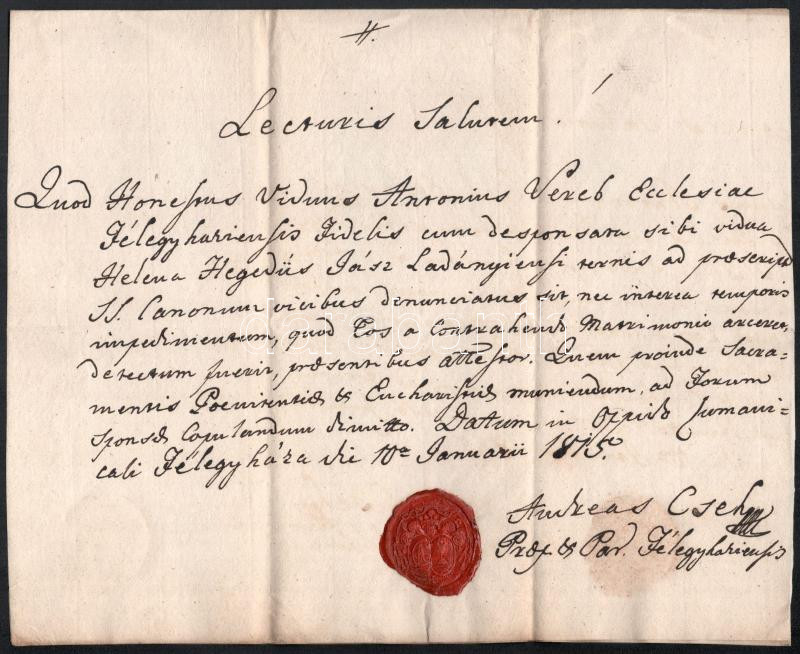 #.
Lecturis Salutem!
Quod Honestus Viduus Antonius Vereb Ecclesiae
Félegyháziensis Fidelis cum desponsata sibi vidua
Helena Hegedüs Jász Ladányiensi ternis ad præscript
SS. Canonum vicibus denunciatus sit, nec interea temporis
impedimentum, quod Eos a contrahendo Matrimonio arceret,
detectum fuerit, præsentibus attestor. Quem proinde Sacra-
mentis Poenitentiæ & Eucharistiæ muniendum, ad Forum
Sponsæ Copulandum dimitto. Datum in Oppido Cumani-
cali Félegyháza die 10a Januarii 1815.
Andreas Cseh
Præp & Par. Félegyháziensis
darabanth